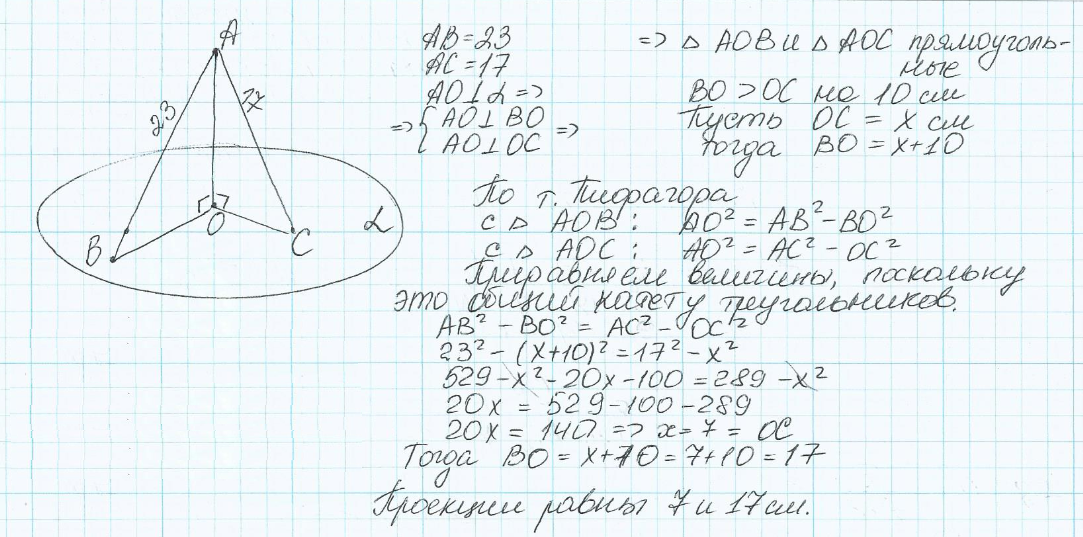 A
23
17
B
O
C
α
AB = 23
AC = 17
AO ⊥ α =>
=> { AO ⊥ BO
AO ⊥ OC =>
=> △ AOB и △ AOC прямоуголь-
ные
BO > OC на 10 см
Пусть OC = x см
тогда BO = x+10
По т. Пифагора
с △ AOB : AO² = AB² - BO²
с △ AOC : AO² = AC² - OC²
Приравняем величины, поскольку
это общий катет у треугольников.
AB² - BO² = AC² - OC²
23² - (x+10)² = 17² - x²
529 - x² - 20x - 100 = 289 - x²
20x = 529 - 100 - 289
20x = 140 => x = 7 = OC
Тогда BO = x+10 = 7+10 = 17
Проекции равны 7 и 17 см.